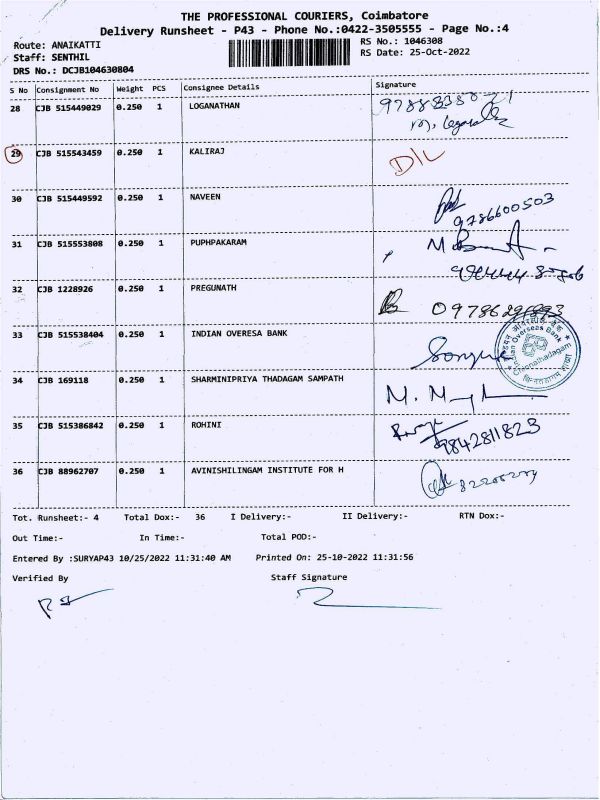 THE PROFESSIONAL COURIERS, Coimbatore
Delivery Runsheet - P43 - Phone No.:0422-3505555 - Page No.:4
Route: ANAIKATTI RS No.: 1046308
Staff: SENTHIL RS Date: 25-Oct-2022
DRS No.: DCJB104630804
S No Consignment No Weight PCS Consignee Details Signature
28 CJB 515449029 0.250 1 LOGANATHAN
29 CJB 515543459 0.250 1 KALIRAJ D/L
30 CJB 515449592 0.250 1 NAVEEN 9786600503
31 CJB 515553808 0.250 1 PUPHPAKARAM
32 CJB 1228926 0.250 1 PREGUNATH
33 CJB 515538404 0.250 1 INDIAN OVERESA BANK
Indian Overseas Bank
34 CJB 169118 0.250 1 SHARMINIPRIYA THADAGAM SAMPATH
35 CJB 515386842 0.250 1 ROHINI 9842811823
36 CJB 88962707 0.250 1 AVINISHILINGAM INSTITUTE FOR H
Tot. Runsheet:- 4 Total Dox:- 36 I Delivery:- II Delivery:- RTN Dox:-
Out Time:- In Time:- Total POD:-
Entered By :SURYAP43 10/25/2022 11:31:40 AM Printed On: 25-10-2022 11:31:56
Verified By Staff Signature